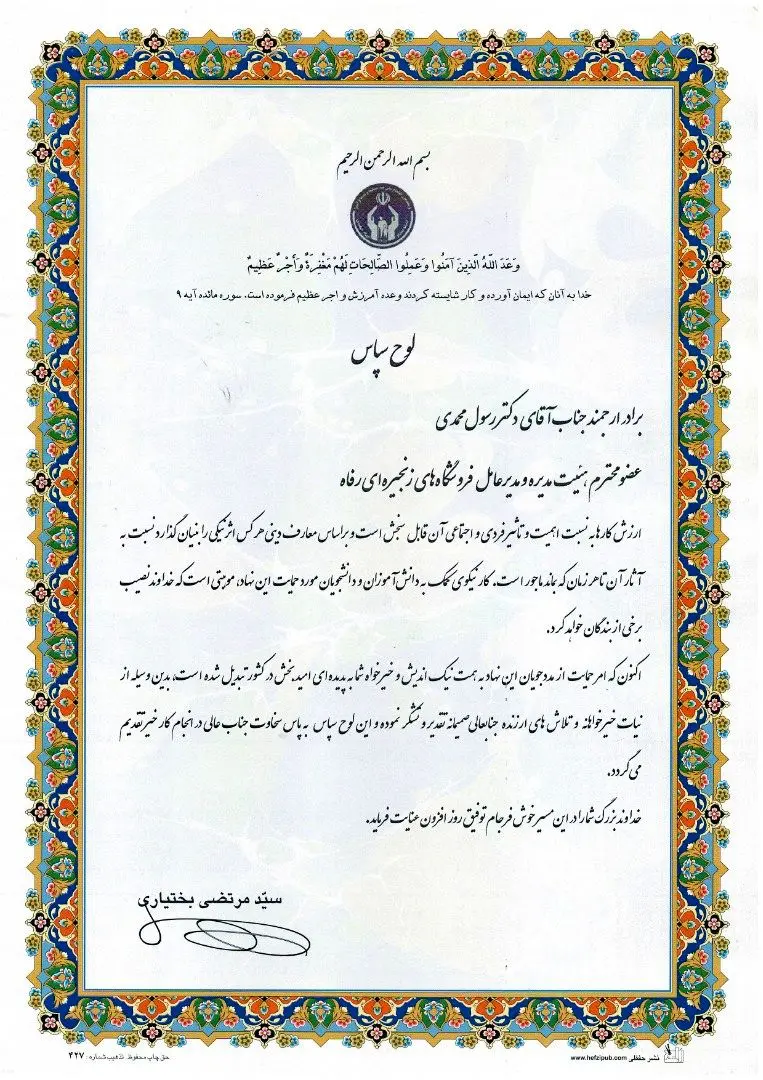 بسم الله الرحمن الرحیم
وَعَدَ اللّهُ الَّذِينَ آمَنُوا وَعَمِلُوا الصَّالِحَاتِ لَهُمْ مَغْفِرَةٌ وَأَجْرٌ عَظِيمٌ
خدا به آنان که ایمان آورده و کار شایسته کردند وعده آمرزش و اجر عظیم فرموده است. سوره مائده آیه ۹
لوح سپاس
برادر ارجمند جناب آقای دکتر رسول محمدی
عضو محترم هیئت مدیره و مدیرعامل فروشگاه های زنجیره ای رفاه
ارزش کارها به نسبت اهمیت و تاثیر فردی و اجتماعی آن قابل سنجش است و براساس معارف دینی هر کس اثر نیکی را بنیان گذارد نسبت به
آثار آن تا هر زمان که بماند ماجور است. کار نیکوی کمک به دانش آموزان و دانشجویان مورد حمایت این نهاد، موهبتی است که خداوند نصیب
برخی از بندگان خواهد کرد.
اکنون که امر حمایت از مددجویان این نهاد به همت نیک اندیش و خیرخواه شما به پدیده ای امیدبخش در کشور تبدیل شده است، بدین وسیله از
نیات خیرخواهانه و تلاش های ارزنده جنابعالی صمیمانه تقدیر و تشکر نموده و این لوح سپاس به پاس سخاوت جناب عالی در انجام کار خیر تقدیم
می گردد.
خداوند بزرگ شما را در این مسیر خوش فرجام توفیق روز افزون عنایت فرماید.
سیّد مرتضی بختیاری
نشر حفظی www.hefzipub.com
حق چاپ محفوظ تذهیب شماره: ۴۲۷